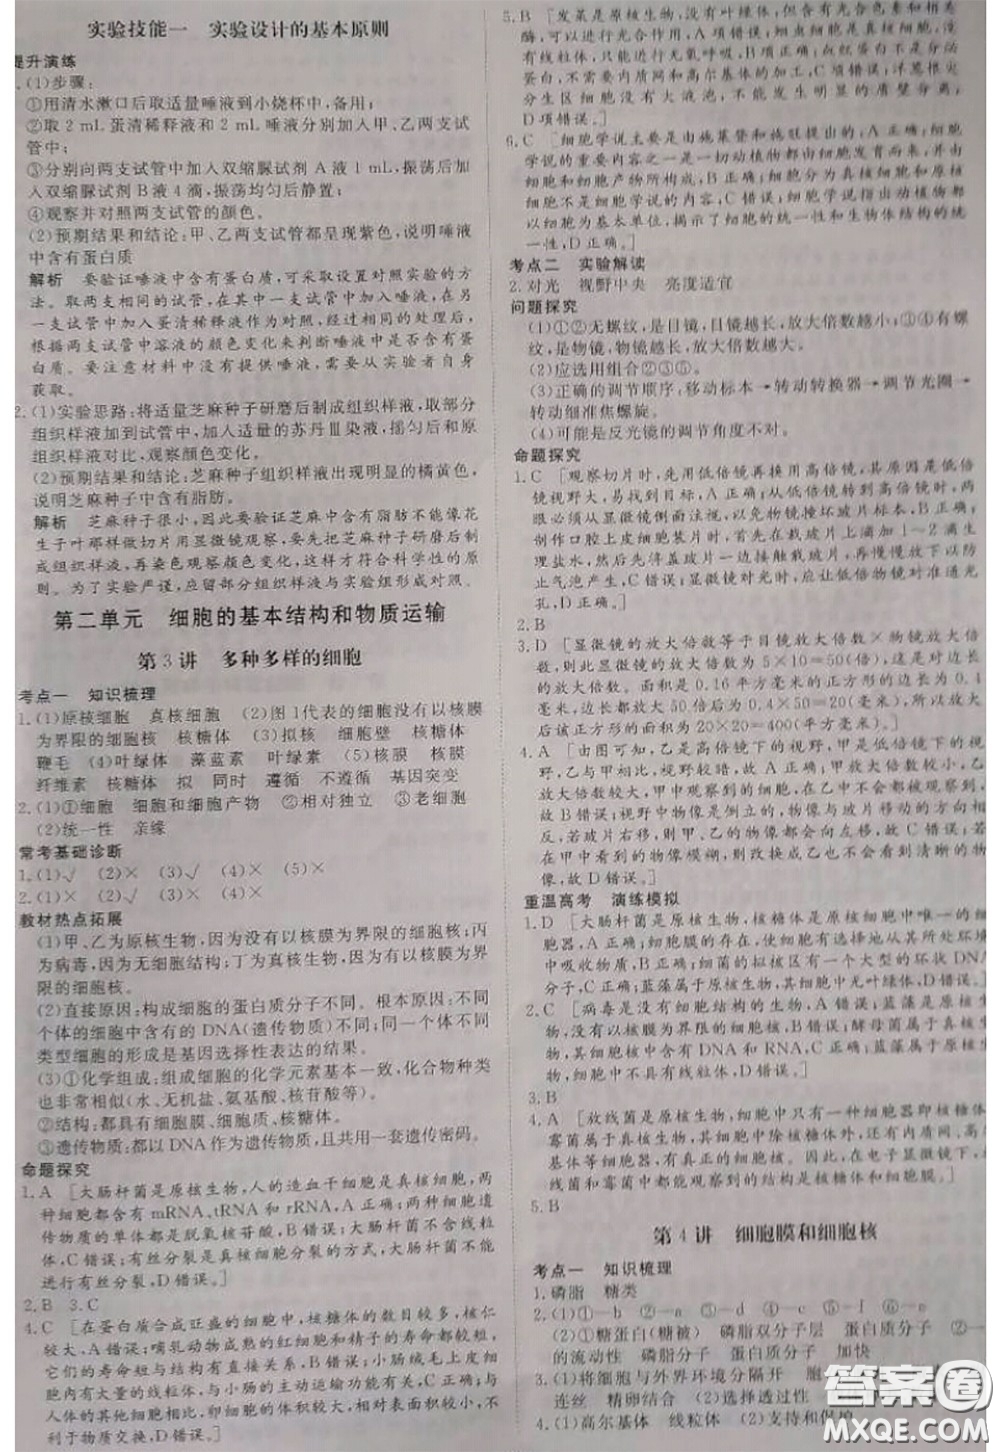 实验技能一 实验设计的基本原则
提升演练
(1)步骤:
①用清水漱口后取适量唾液到小烧杯中,备用;
②取 2 mL 蛋清稀释液和 2 mL 唾液分别加入甲、乙两支试
管中;
③分别向两支试管中加入双缩脲试剂 A 液 1 mL,振荡后加
入双缩脲试剂 B 液 4 滴,振荡均匀后静置;
④观察并对照两支试管的颜色。
(2)预期结果和结论:甲、乙两支试管都呈现紫色,说明唾液
中含有蛋白质
解析 要验证唾液中含有蛋白质,可采取设置对照实验的方
法。取两支相同的试管,在其中一支试管中加入唾液,在另
一支试管中加入蛋清稀释液作为对照,经过相同的处理后,
根据两支试管中溶液的颜色变化来判断唾液中是否含有蛋
白质。要注意材料中没有提供唾液,需要从实验者自身
获取。
2.(1)实验思路:将适量芝麻种子研磨后制成组织样液,取部分
组织样液加到试管中,加入适量的苏丹Ⅲ染液,摇匀后和原
组织样液对比,观察颜色变化。
(2)预期结果和结论:芝麻种子组织样液出现明显的橘黄色,
说明芝麻种子中含有脂肪。
解析 芝麻种子很小,因此要验证芝麻中含有脂肪不能像花
生子叶那样做切片用显微镜观察,要先把芝麻种子研磨后制
成组织样液,再染色观察颜色变化,这样才符合科学性的原
则。为了实验严谨,应留部分组织样液与实验组形成对照。
第二单元 细胞的基本结构和物质运输
第 3 讲 多种多样的细胞
考点一 知识梳理
1.(1)原核细胞 真核细胞 (2)图 1 代表的细胞没有以核膜
为界限的细胞核 核糖体 (3)拟核 细胞壁 核糖体
鞭毛 (4)叶绿体 藻蓝素 叶绿素 (5)核膜 核膜
纤维素 核糖体 拟 同时 遵循 不遵循 基因突变
2.(1)①细胞 细胞和细胞产物 ②相对独立 ③老细胞
(2)统一性 亲缘
常考基础诊断
1.(1)√ (2)× (3)√ (4)× (5)×
2.(1)× (2)√ (3)√ (4)×
教材热点拓展
(1)甲、乙为原核生物,因为没有以核膜为界限的细胞核;丙
为病毒,因为无细胞结构;丁为真核生物,因为有以核膜为界
限的细胞核。
(2)直接原因:构成细胞的蛋白质分子不同。根本原因:不同
个体的细胞中含有的 DNA(遗传物质)不同;同一个体不同
类型细胞的形成是基因选择性表达的结果。
(3)①化学组成:组成细胞的化学元素基本一致,化合物种类
也非常相似(水、无机盐、氨基酸、核苷酸等)。
②结构:都具有细胞膜、细胞质、核糖体。
③遗传物质:都以 DNA 作为遗传物质,且共用一套遗传密码。
命题探究
1.A [大肠杆菌是原核生物,人的造血干细胞是真核细胞,两
种细胞都含有 mRNA、tRNA 和 rRNA,A 正确;两种细胞遗
传物质的单体都是脱氧核苷酸,B 错误;大肠杆菌是原核生
物,C 错误;有丝分裂是真核细胞分裂的方式,大肠杆菌不能
进行有丝分裂,D 错误。]
2.B 3.C
4.C [在蛋白质合成旺盛的细胞中,核糖体的数目较多,核仁
较大,A 错误;哺乳动物成熟的红细胞和精子的寿命都较短,
它们的寿命短与结构有直接关系,B 错误;小肠绒毛上皮细
胞内有大量的线粒体,与小肠的主动运输功能有关,C 正确;与
人体的其他细胞相比,卵细胞的体积较大,相对表面积小,不
利于物质交换,D 错误。]
5.B [发菜是原核生物,没有叶绿体,但含有光合色素和相关
酶,可以进行光合作用,A 项错误;蛔虫细胞是真核细胞,没
有线粒体,只能进行无氧呼吸,B 项正确;血红蛋白不是分泌
蛋白,不需要内质网和高尔基体的加工,C 项错误;洋葱根尖
分生区细胞没有大液泡,不能发生明显的质壁分离,
D 项错误。]
6.C [细胞学说主要是由施莱登和施旺提出的,A 正确;细胞
学说的重要内容之一是一切动植物都由细胞发育而来,并由
细胞和细胞产物所构成,B 正确;细胞分为真核细胞和原核
细胞不是细胞学说的内容,C 错误;细胞学说指出动植物都
以细胞为基本单位,揭示了细胞的统一性和生物体结构的统
一性,D 正确。]
考点二 实验解读
2.对光 视野中央 亮度适宜
问题探究
(1)①②无螺纹,是目镜,目镜越长,放大倍数越小;③④有螺
纹,是物镜,物镜越长,放大倍数越大。
(2)应选用组合②③⑤。
(3)正确的调节顺序:移动标本→转动转换器→调节光圈→
转动细准焦螺旋。
(4)可能是反光镜的调节角度不对。
命题探究
1.C [观察切片时,先用低倍镜再换用高倍镜,是因为低倍
镜视野大,易找到目标,A 正确;从低倍镜转到高倍镜时,两
眼必须从显微镜侧面注视,以免物镜撞坏玻片标本,B 正确;
制作口腔上皮细胞装片时,首先在载玻片上滴加 1~2 滴生
理盐水,然后先将盖玻片一边接触载玻片,再慢慢放下以
防止气泡产生,C 错误;显微镜对光时,应让低倍物镜对准通光
孔,D 正确。]
2.B
3.D [显微镜的放大倍数等于目镜放大倍数×物镜放大倍数,
由此可见显微镜的放大倍数为 5×10=50(倍),是长和宽
的放大倍数。面积是 0.16 平方毫米的正方形的边长是
0.4毫米,放大 50 倍后为 0.4×50=20(毫米),所以放大
后该正方形的面积为 20×20=400(平方毫米)。]
4.A [由图可知,乙是高倍镜下的视野,甲是低倍镜下的视野,
乙与甲相比,视野较暗,故 A 正确。甲的放大倍数较小,乙的
放大倍数较大,在甲中观察到的细胞,在乙中不会都被观察到,
故 B 错误;视野中物像是倒立的,物像与玻片移动的方向相
反,若玻片右移,则甲、乙的物像都会向左移,故 C 错误。若
在甲中看到的物像模糊,则改换成乙也不能看到清晰的物
像,故 D 错误。]
重温高考 演练模拟
1.D [大肠杆菌是原核生物,核糖体是原核细胞中唯一的细
胞器,A 正确;由于细胞膜的存在,使细胞有选择地从其所处环境
中吸收物质,B 正确;细菌的拟核区有一个大型的环状 DNA
分子,C 正确;蓝藻属于原核生物,细胞中无叶绿体,D 错误。]
2.C [病毒是没有细胞结构的生物,A 错误;蓝藻是原核生
物,没有以核膜为界限的细胞核,B 错误;酵母菌属于真核生
物,其细胞中含有 DNA 和 RNA,C 正确;蓝藻属于原核生物,
细胞中不具有线粒体,D 错误。]
3.B
4.A [放线菌是原核生物,细胞中只有一种细胞器即核糖体,
霉菌属于真核生物,其细胞中除核糖体外,还有内质网、高尔
基体等细胞器和由核膜包被的细胞核。因此,在电子显微镜下,放线
菌和霉菌中都能观察到的结构是核糖体和细胞膜。]
5.B
第 4 讲 细胞膜和细胞核
考点一 知识梳理
1.磷脂 糖类
2.(1)①—b ②—a
(2)①糖蛋白(糖被) 磷脂双分子层 蛋白质分子
的流动性 磷脂分子 蛋白质分子 加快
3.(1)将细胞与外界环境分隔开
连丝 精卵结合 (2)选择透过性
4.(1)高尔基体 线粒体 (2)支持和保护
答案圈
MXQE.COM